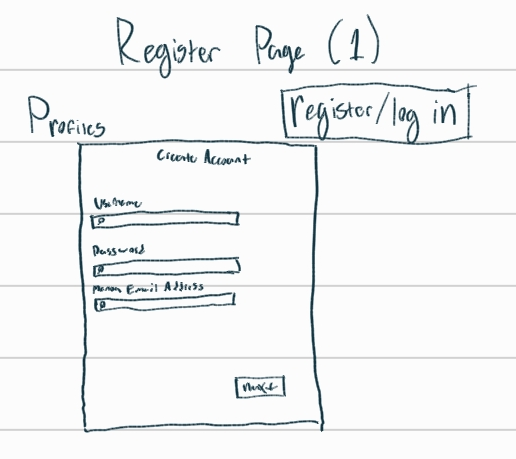 Register Page (1)
Profiles
register/log in
Create Account
Username
Password
Email Address
next